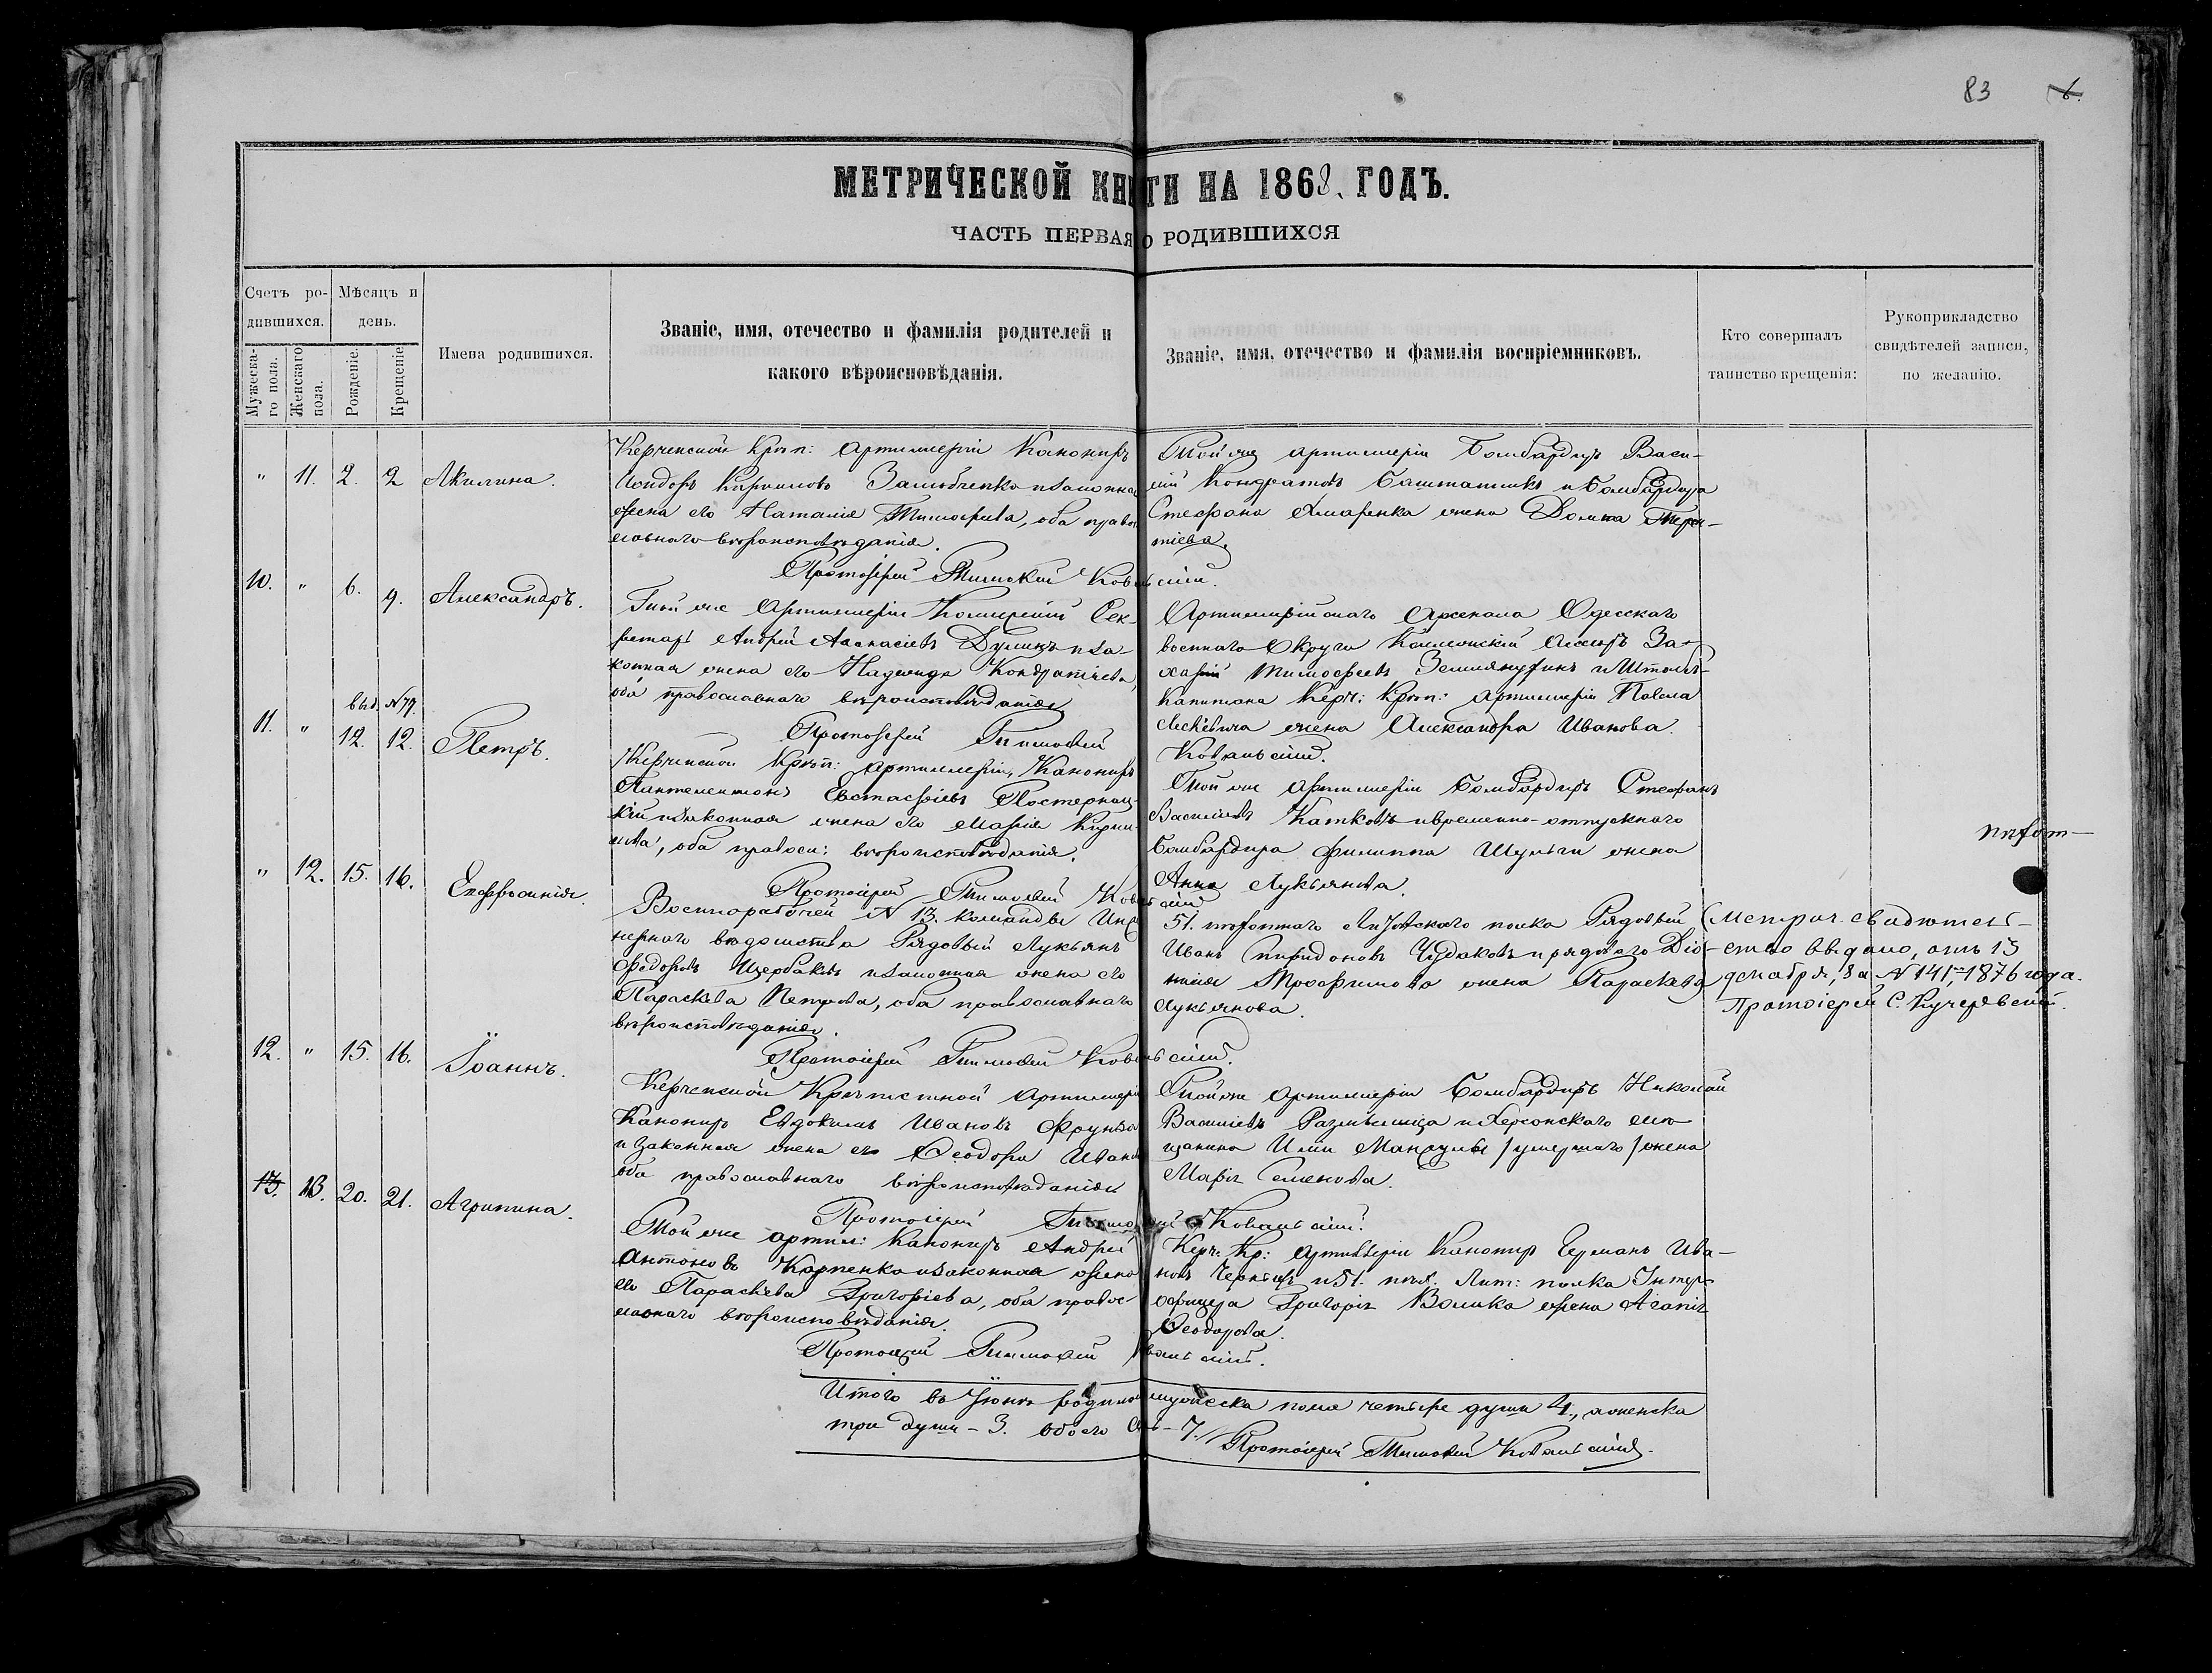 83
МЕТРИЧЕСКОЙ КНИГИ НА 1868. ГОДЪ.
ЧАСТЬ ПЕРВАЯ О РОДИВШИХСЯ
Счетъ ро-
дившихся.
Мужеска-
го пола.
Женскаго
пола.
Мѣсяцъ и
день.
Рожденіе.
Крещеніе.
Имена родившихся.
Званіе, имя, отечество и фамилія родителей и
какого вѣроисповѣданія.
Званіе, имя, отечество и фамилія воспріемниковъ.
Кто совершалъ
таинство крещенія:
Рукоприкладство
свидѣтелей записи,
по желанію.
" 11. 2. 2 Акилина.
Керченской Крѣп: Артиллеріи Канониръ
Исидоръ Кирилловъ и законная
жена его Наталія Тимофеева, оба правос
лавнаго вѣроисповѣданія.
Той же артиллеріи Бомбардиръ Васи-
лій Кондратовъ Баштанникъ и Бомбардира
Стефана жена Домна
тіева.
Протоіерей Тимофей Ковальскій.
10. " 6. 9. Александръ.
Той же Артиллеріи Коллежскій Сек-
ретарь Андрей Аѳанасіевъ и за
конная жена его Надежда Кондратіева,
оба православнаго вѣроисповѣданія
Артиллерійскаго Арсенала Одесскаго
военнаго Округа За-
харій Тимофеевъ и Штабсъ-
Капитана Керч: Крѣп: артиллеріи Павла
жена Александра Иванова.
Протоіерей Тимофей Ковальскій.
выд. №79.
11. " 12. 12. Петръ.
Керченской Крѣп: артиллеріи, Канониръ
Пантелеимонъ Евстафіевъ Постернац-
кій и законная жена его Марія Кирил-
лова, оба правосл: вѣроисповѣданія.
Той же артиллеріи Бомбардиръ Стефанъ
Василіевъ Катковъ и временно-отпускнаго
Бомбардира Филиппа Шульги жена
Анна Лукьянова.
Протоіерей Тимофей Ковальскій
" 12. 15. 16. Евфросинія.
Военнорабочей № 13. команды Инже
нернаго вѣдомства Рядовый Лукьянъ
Федоровъ Щербаковъ и законная жена его
Параскева Петрова, оба православнаго
вѣроисповѣданія.
51. пѣхотнаго Литовскаго полка Рядовый
Иванъ Спиридоновъ Чудаковъ и рядоваго Діо-
нисія Трофимова жена Параскева
Лукьянова.
Метрич. свидѣтель-
ство выдано, отъ 13
декабря, за № 141, 1876 года.
Протоіерей С. Кучеревскій.
Протоіерей Тимофей Ковальскій.
12. " 15. 16. Іоаннъ.
Керченской Крѣпостной Артиллеріи
Канониръ Евдокимъ Ивановъ Фрунза
и законная жена его Ѳеодора Иванова
оба православнаго вѣроисповѣданія
Той же артиллеріи Бомбардиръ Николай
Василіевъ и Херсонскаго мѣ
щанина Ильи /умершаго/ жена
Марія Семенова.
Протоіерей Тимофей Ковальскій.
13. 13. 20. 21. Агрипина.
Той же артил: Канониръ Андрей
Антоновъ Карпенко и законная жена
его Параскева Григоріева, оба правос
лавнаго вѣроисповѣданія.
Керч. Кр: Артиллеріи Канониръ Германъ Ива-
новъ и 51. пѣх. Лит: полка Унтер
офицера Григорія Волика жена Агапія
Ѳеодорова.
Протоіерей Тимофей Ковальскій.
Итого въ Іюнѣ родилось мужеска пола четыре души 4, а женска
три души - 3. обоего 7.
Протоіерей Тимофей Ковальскій.